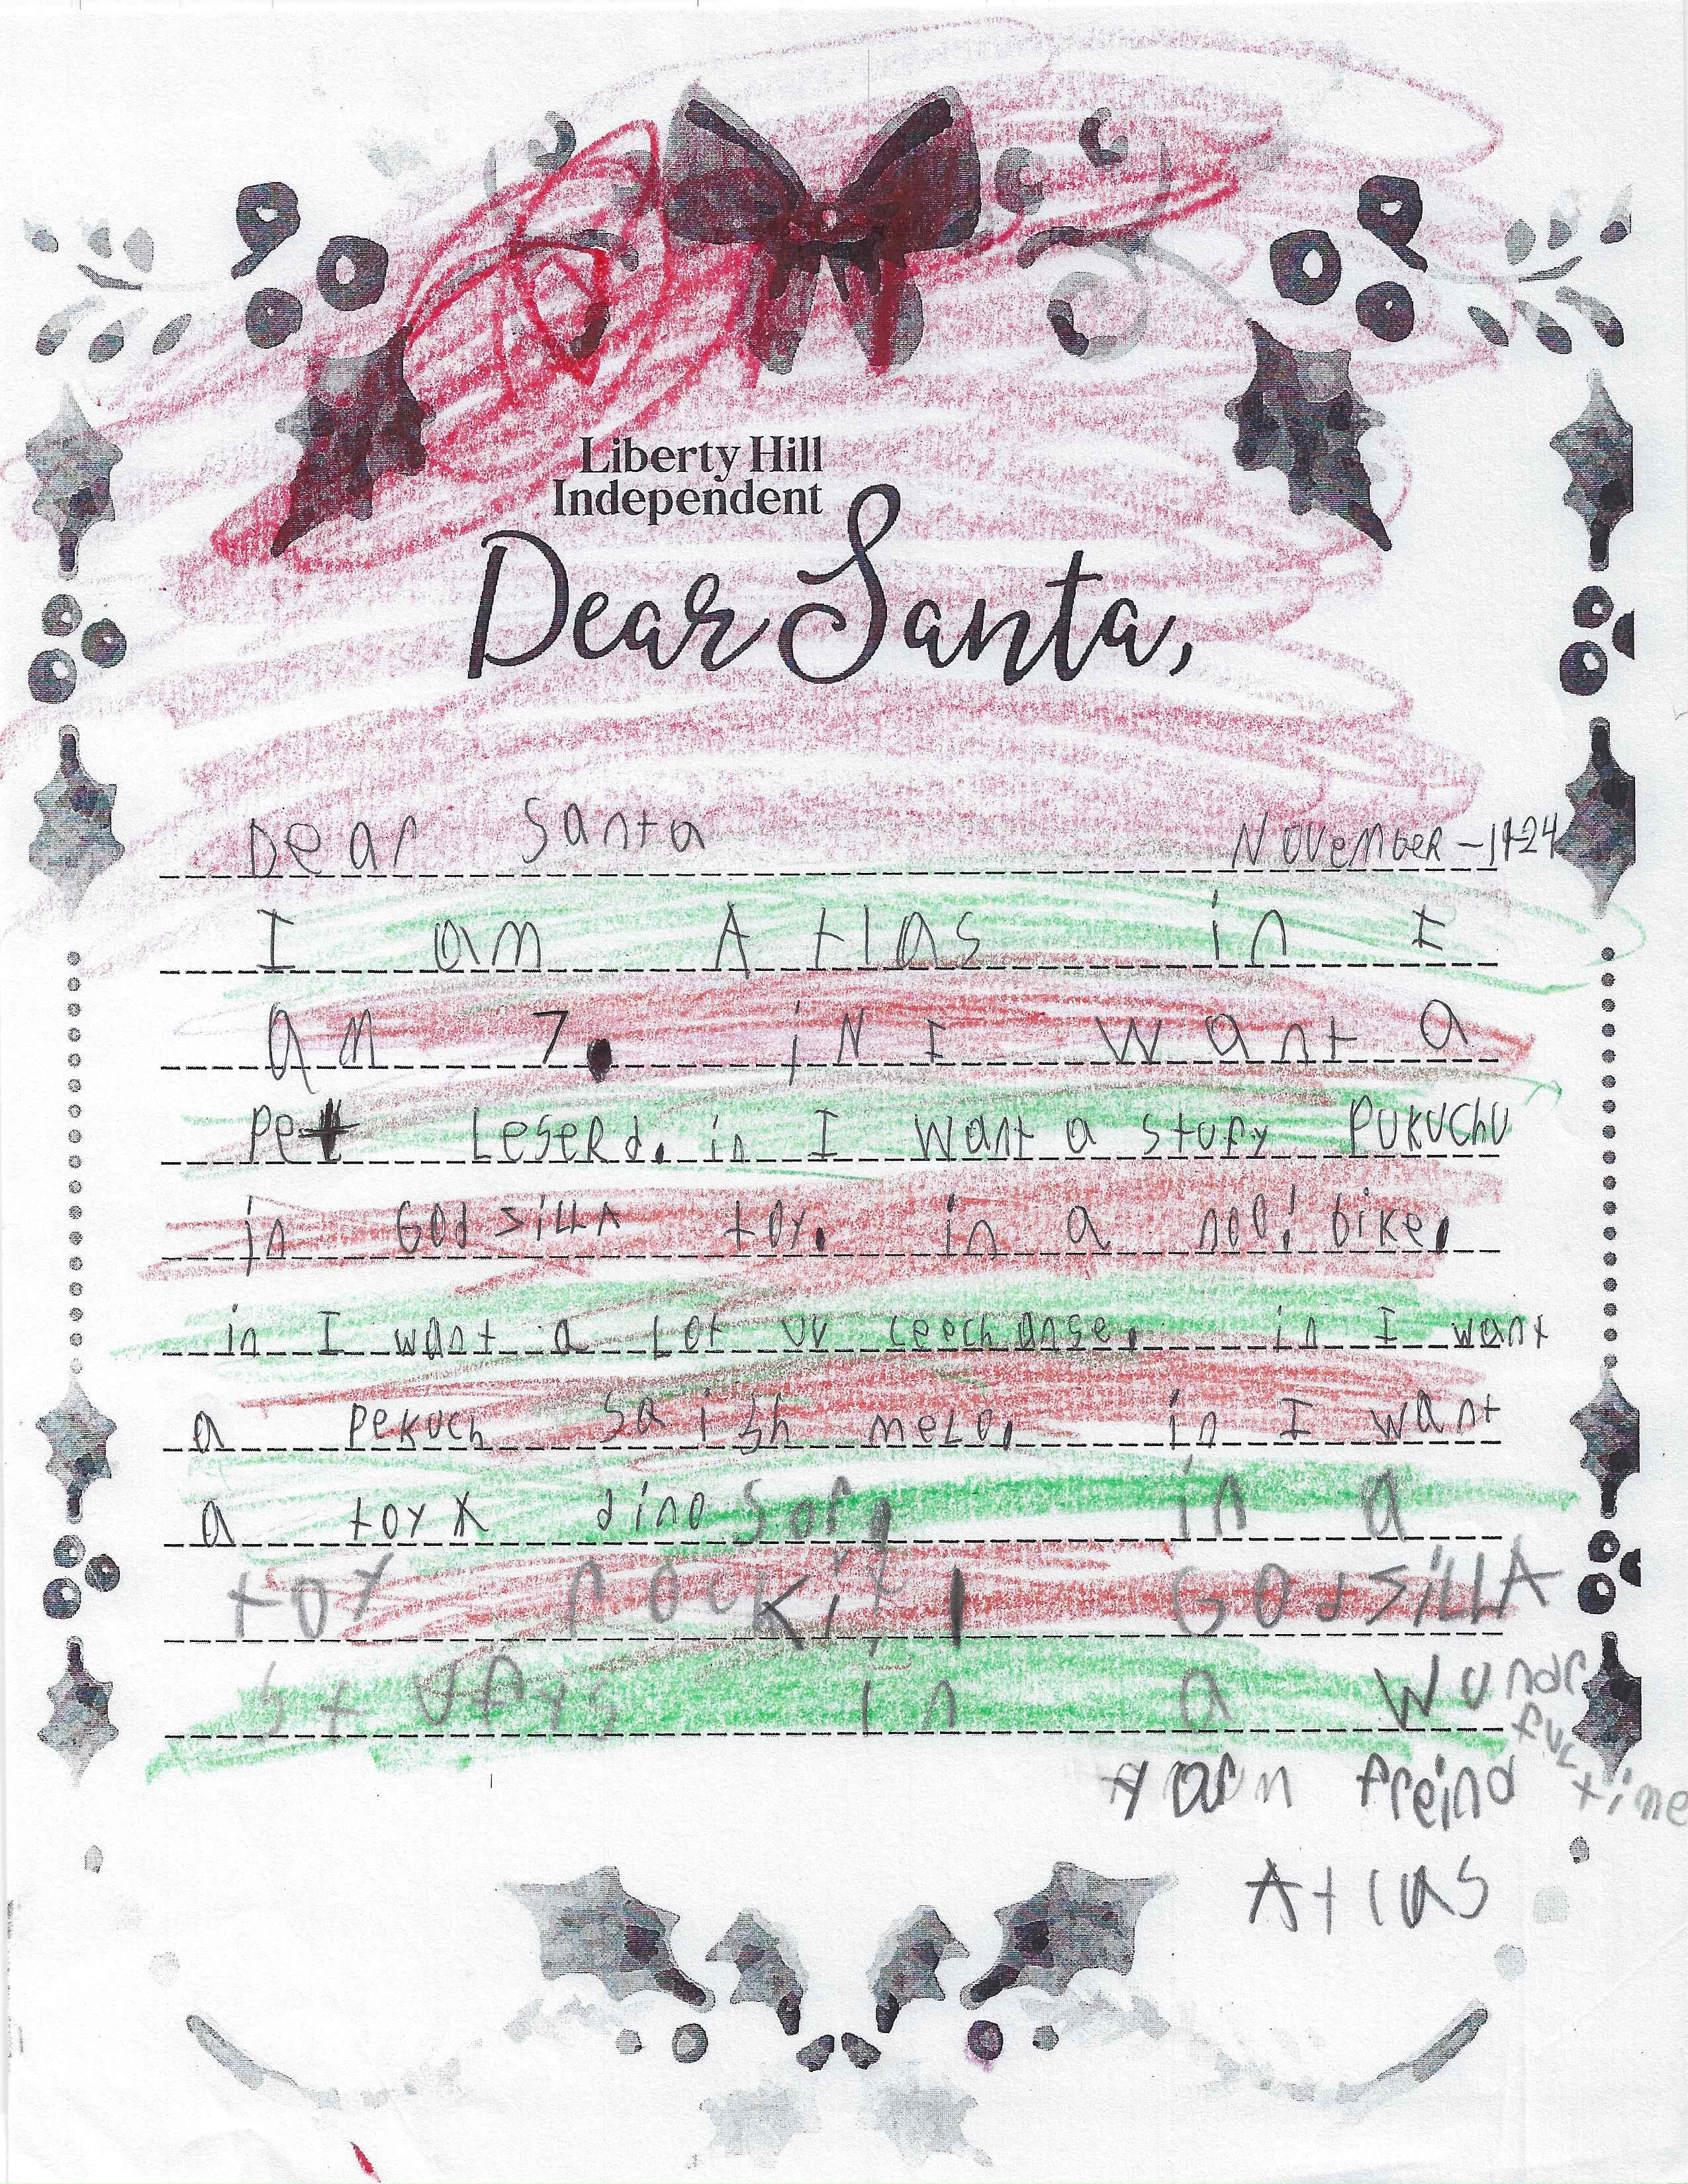 Liberty Hill
Independent
Dear Santa,
Dear Santa NOVemBER -
I am Atlas in I
am 7. iN I want a
Pet LeseRd. in I want a stufy PUKUCHU
in GodsiLLA toy. in a noo! bike.
in I want a Lot uv Leechanse. in I want
a Pekuch saish melo, in I want
a toy dinosor, in a
toy rockit GodsiLLA
stufys in a Wundr
fuL
time
freind
Atlas